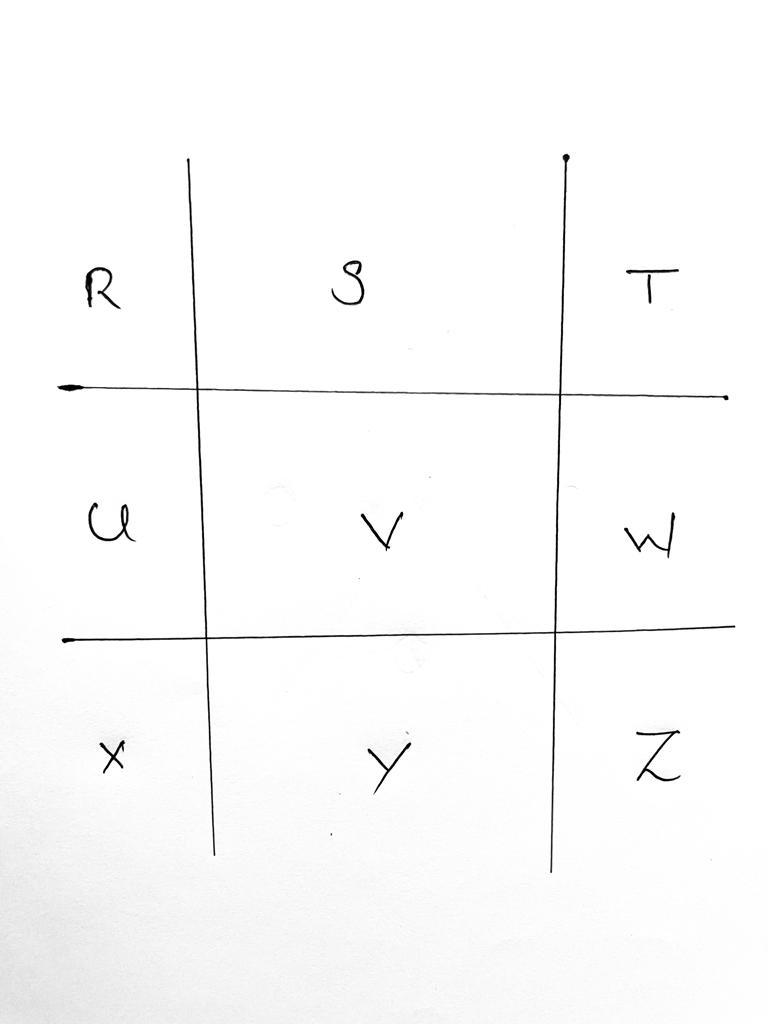 R S T
U V W
X Y Z